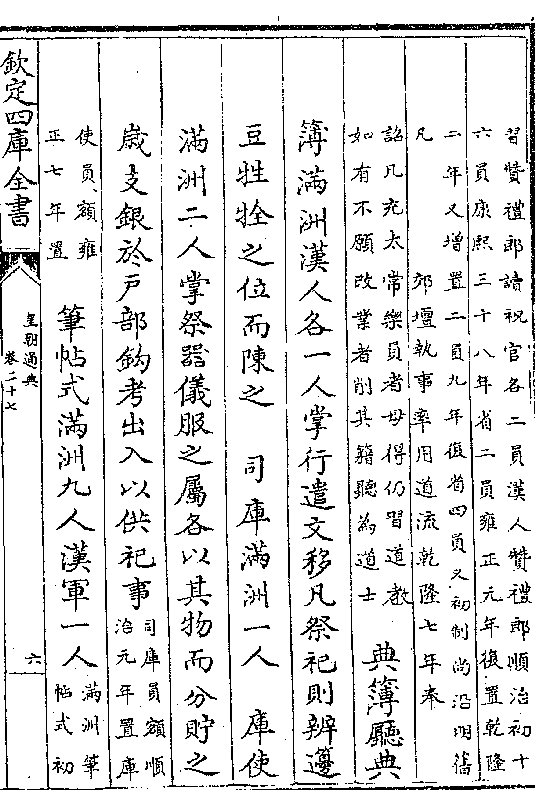 習贊禮郎讀祝官各二員漢人贊禮郎順治初十
六員康熙三十八年省二員雍正元年復置乾隆
二年又增置二員九年復省四員又初制尚沿明舊
凡　郊壇執事率用道流乾隆七年奉
詔凡充太常樂員者毋得仍習道教
如有不願改業者削其籍聽為道士
典簿廳典
簿滿洲漢人各一人掌行遣文移凡祭祀則辨籩
豆牲牷之位而陳之　司庫滿洲一人　庫使
滿洲二人掌祭器儀服之屬各以其物而分貯之
歲支銀於戶部鈎考出入以供祀事
司庫員額順
治元年置庫
使員額雍
正七年置
筆帖式滿洲九人漢軍一人
滿洲筆
帖式初
欽定四庫全書
皇朝通典
卷二十七
六